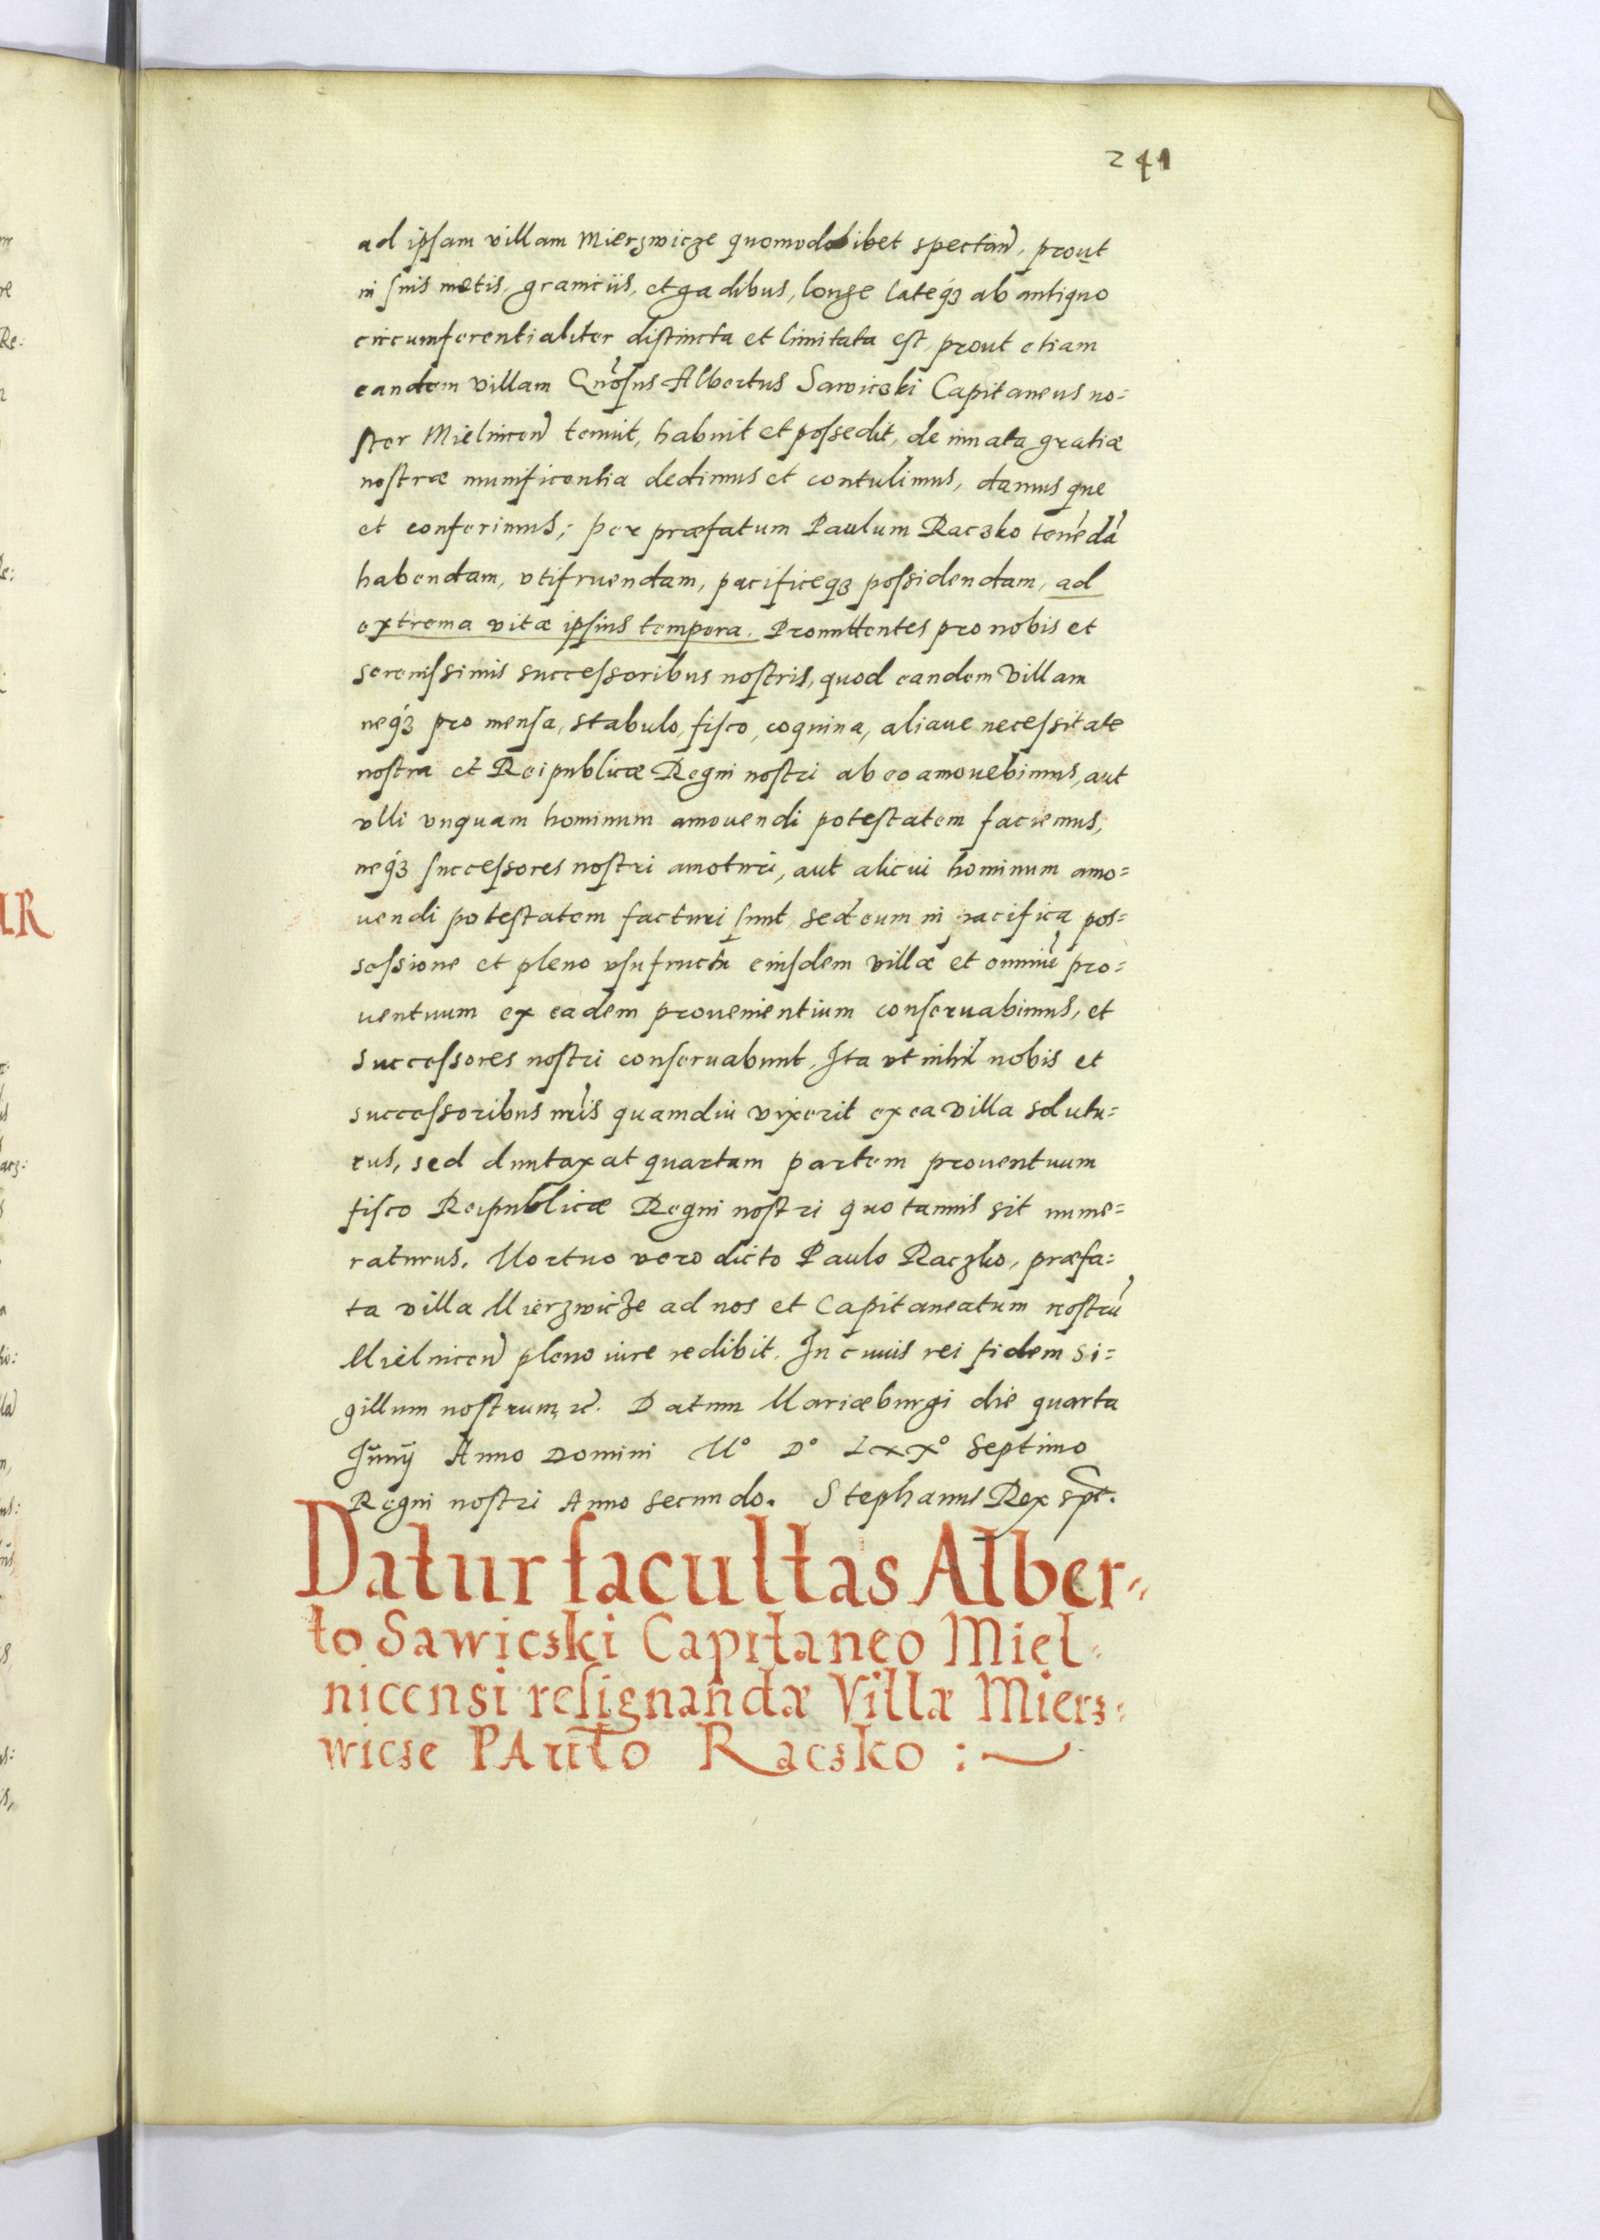 241
ad ipsam villam Mierzwicze quomodolibet spectan̄, prout
in suis metis, graniciis, et gadibus, longe lateq₃ ab antiquo
circumferentialiter distincta et limitata est, prout etiam
eandem villam Gn̄osus Albertus Sawiczki Capitaneus no=
ster Mielnicen̄ tenuit, habuit et possedit, de innata gratiæ
nostræ munificentia dedimus et contulimus, damus que
et conferimus; per præfatum Paulum Raczko tenēdā
habendam, vtifruendam, pacificeq₃ possidendam, ad
extrema vitæ ipsius tempora. Promittentes pro nobis et
serenissimis successoribus nostris, quod eandem villam
neq₃ pro mensa, stabulo, fisco, coquina, aliaue necessitate
nostra et Reipublicæ Regni nostri ab eo amouebimus, aut
vlli vnquam hominum amouendi potestatem faciemus,
neq₃ successores nostri amoturi, aut alicui hominum amo=
uendi potestatem facturi sunt, sed eum in pacifica pos=
sessione et pleno vsufructu eiusdem villæ et omniū pro=
uentuum ex eadem prouenientium conseruabimus, et
successores nostri conseruabunt. Ita vt nihil nobis et
successoribus nr̄is quamdiu vixerit ex ea villa solutu=
rus, sed duntaxat quartam partem prouentuum
fisco Reipublicæ Regni nostri quotannis sit nume=
raturus. Mortuo vero dicto Paulo Raczko, præfa=
ta villa Mierzwicze ad nos et Capitaneatum nostrū
Mielnicen̄ pleno iure redibit. In cuius rei fidem si=
gillum nostrum, &c. Datum Mariæburgi die quarta
Junij Anno Domini M° D° LXX° Septimo
Regni nostri Anno Secundo. Stephanus Rex spt.
Datur facultas Alber=
to Sawicski Capitaneo Miel=
nicensi resignandæ Villæ Miers=
wicse PAulo Racsko :